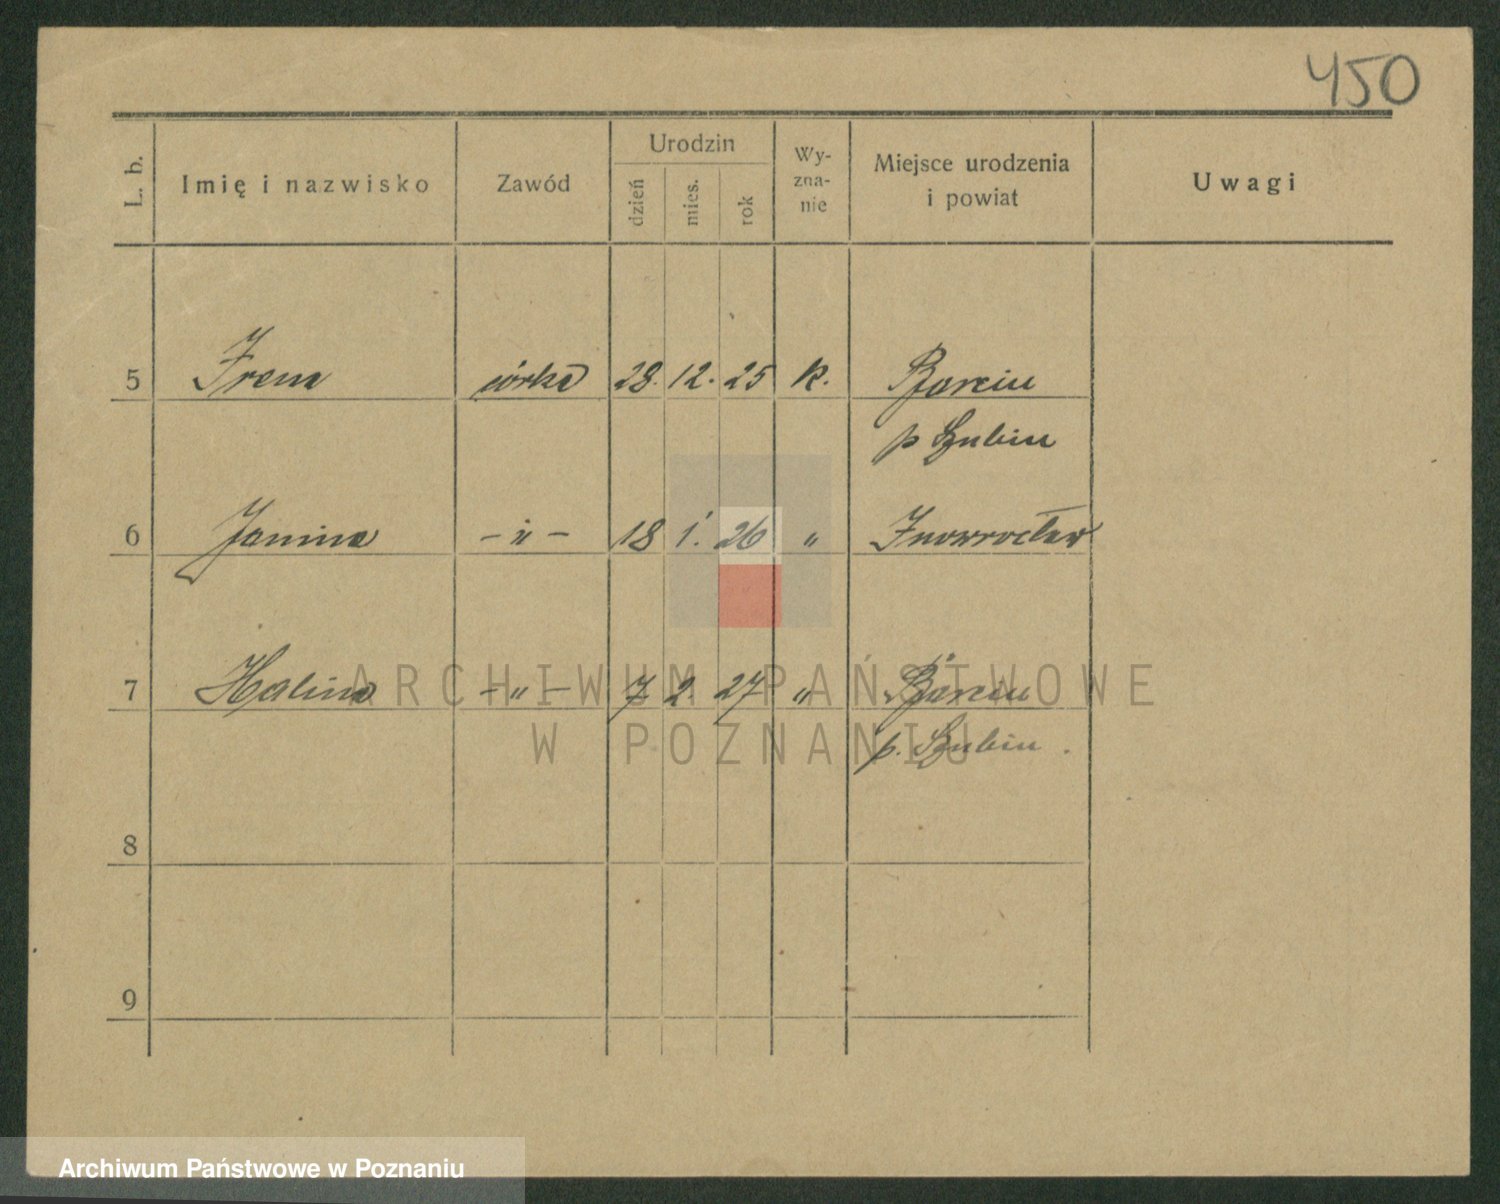 450
L. b. Imię i nazwisko Zawód Urodzin dzień mies. rok Wy-zna-nie Miejsce urodzenia i powiat Uwagi
5 Irena córka 28. 12. 25 k. Barcin
p Szubin
6 Janina - " - 18 1. 26 " Inowrocław
7 Halina - " - 7 2. 27 " Barcin
p. Szubin.
8
9
ARCHIWUM PAŃSTWOWE
W POZNANIU
Archiwum Państwowe w Poznaniu